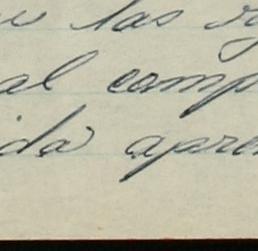 las
al comp
ida apren